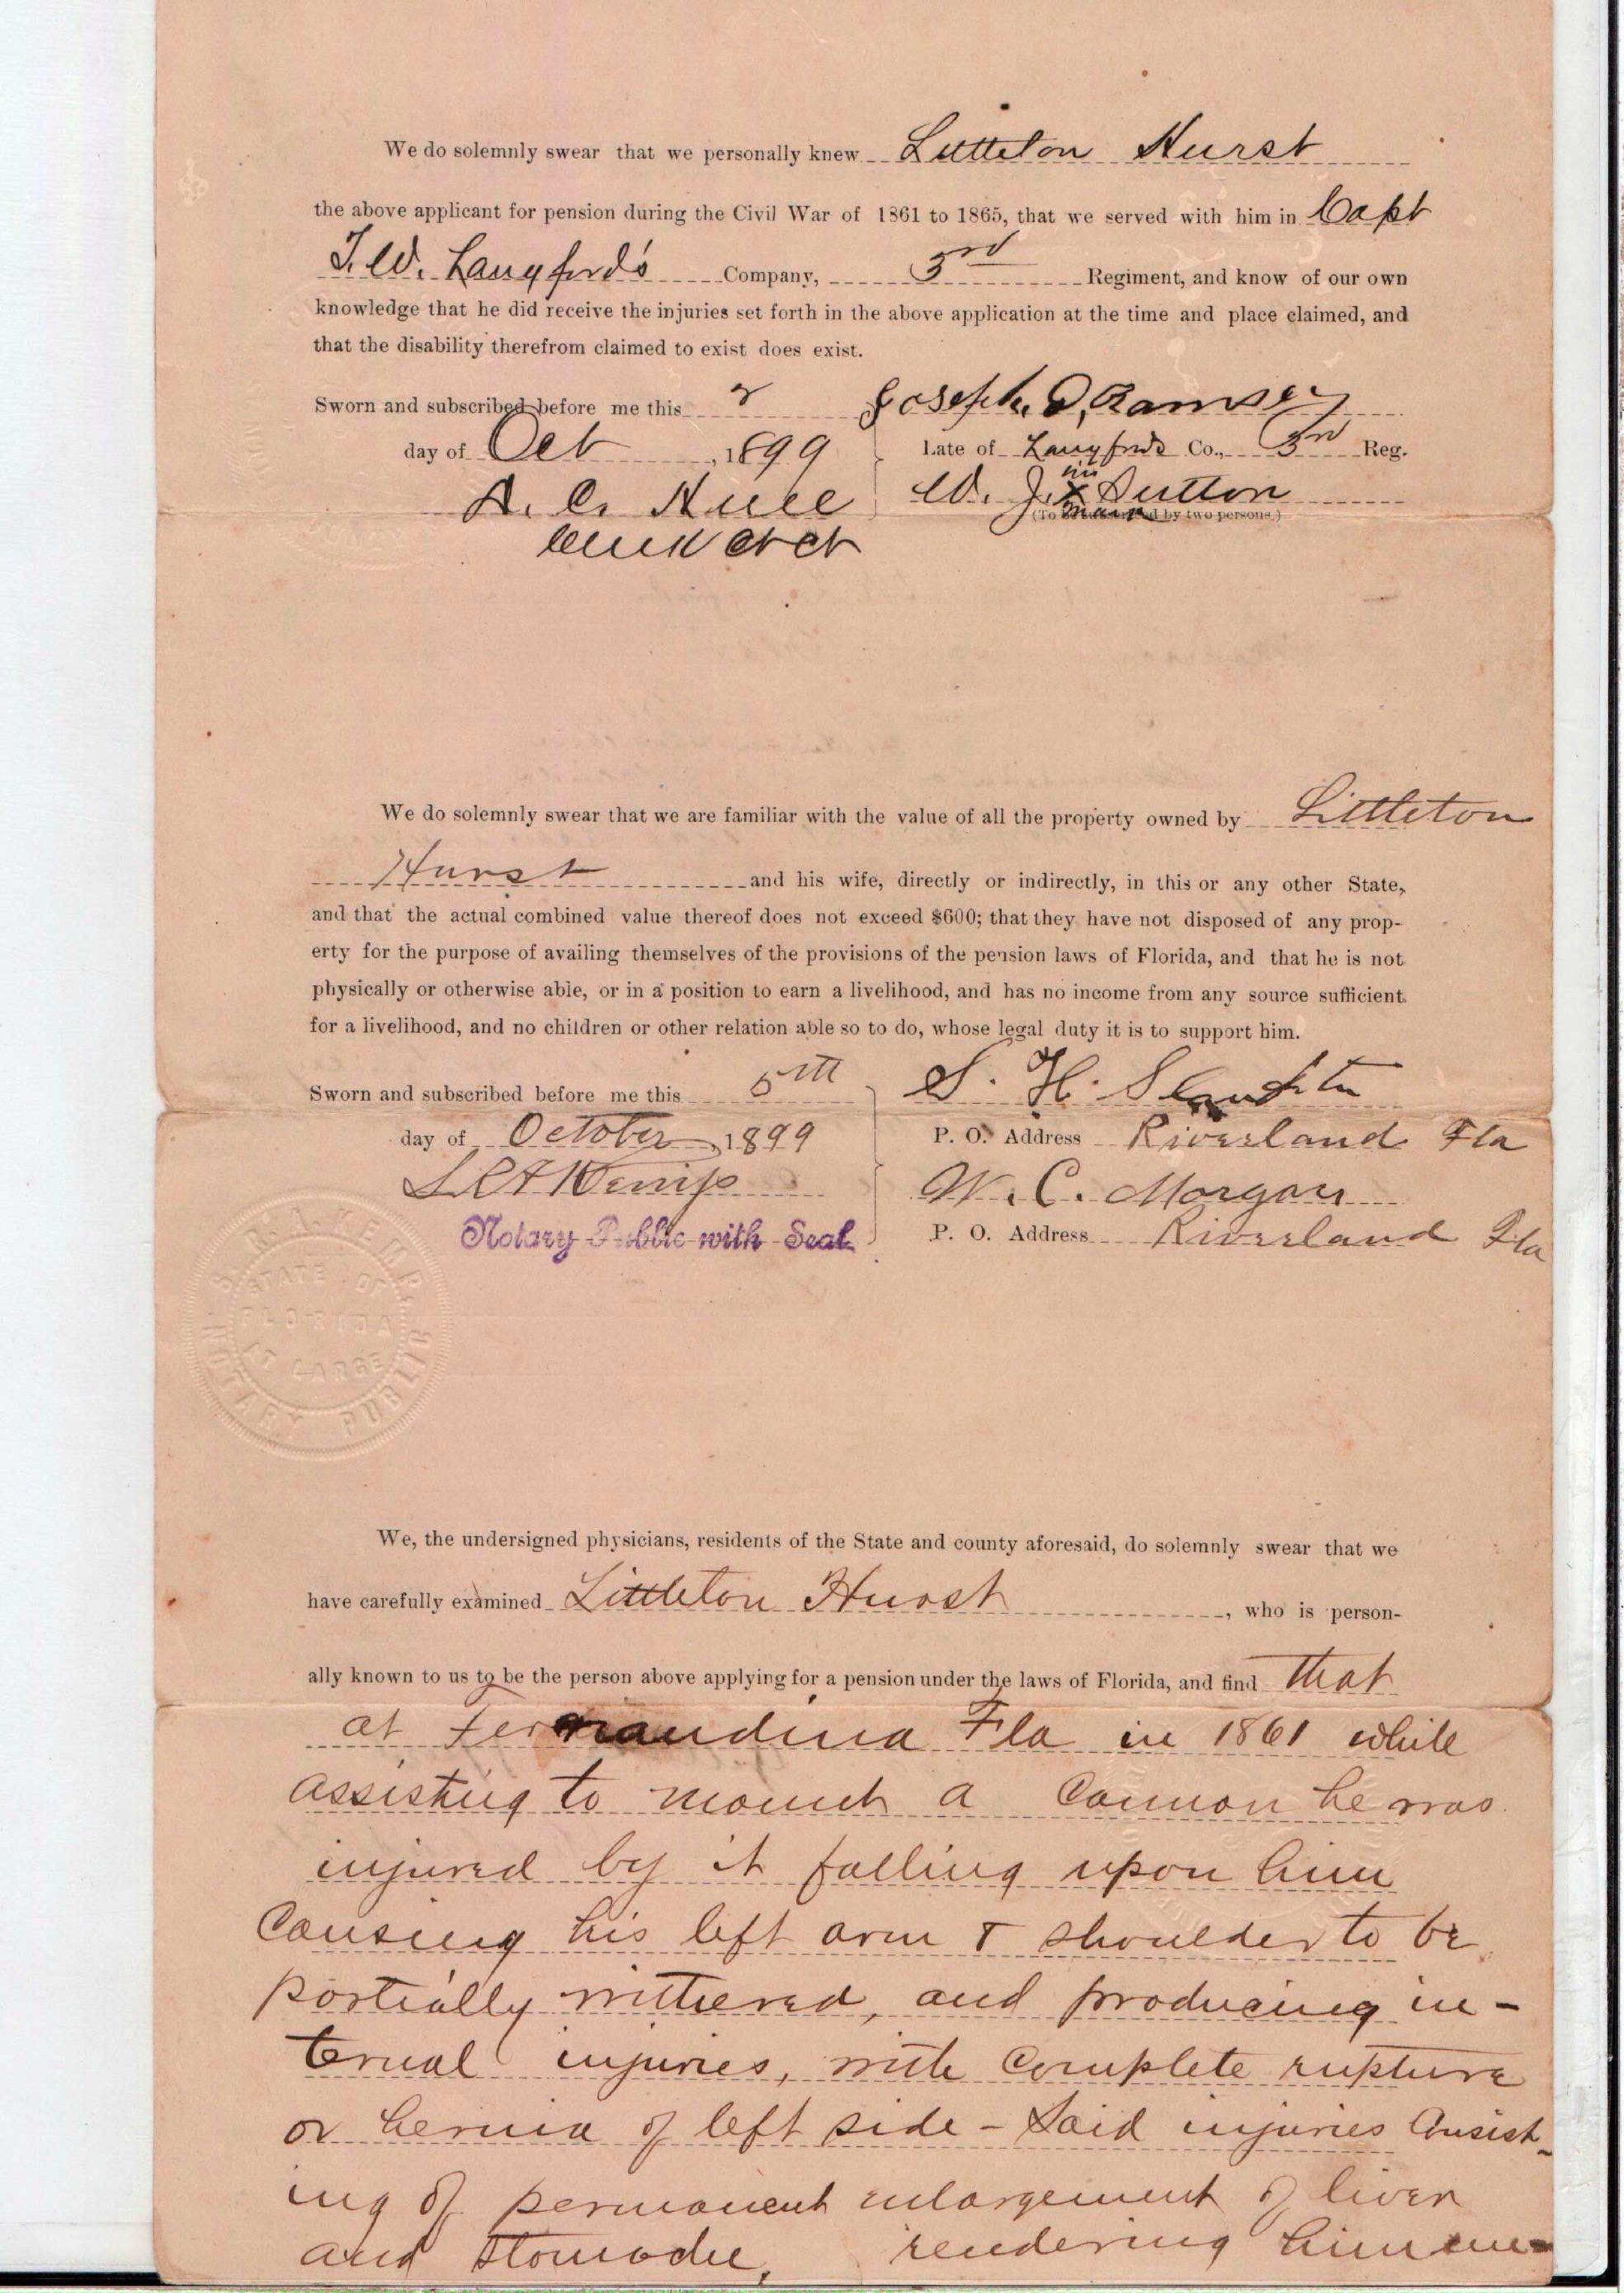 We do solemnly swear that we personally knew Littleton Hurst
the above applicant for pension during the Civil War of 1861 to 1865, that we served with him in Capt
T. W. Langford's Company, 3rd Regiment, and know of our own
knowledge that he did receive the injuries set forth in the above application at the time and place claimed, and
that the disability therefrom claimed to exist does exist.
Sworn and subscribed before me this 2 Joseph D. Ramsey
day of Oct, 1899 Late of Langfords Co., 3rd Reg.
his
W. J. x Sutton
mark
(To be by two persons.)
We do solemnly swear that we are familiar with the value of all the property owned by Littleton
Hurst and his wife, directly or indirectly, in this or any other State,
and that the actual combined value thereof does not exceed $600; that they have not disposed of any prop-
erty for the purpose of availing themselves of the provisions of the pension laws of Florida, and that he is not
physically or otherwise able, or in a position to earn a livelihood, and has no income from any source sufficient
for a livelihood, and no children or other relation able so to do, whose legal duty it is to support him.
Sworn and subscribed before me this 5th S. H.
day of October, 1899 P. O. Address Riverland Fla
Kemp W. C. Morgan
Notary Public with Seal P. O. Address Riverland Fla
R. A. KEMP
NOTARY PUBLIC
STATE OF
FLORIDA
AT LARGE
We, the undersigned physicians, residents of the State and county aforesaid, do solemnly swear that we
have carefully examined Littleton Hurst, who is person-
ally known to us to be the person above applying for a pension under the laws of Florida, and find that
at Fernandina Fla in 1861 while
assisting to mount a Cannon he was
injured by it falling upon him
Causing his left arm & shoulder to be
partially withered, and producing in-
ternal injuries, with Complete rupture
or hernia of left side - Said injuries Consist-
ing of permanent enlargement of liver
and Stomache, rendering him un-